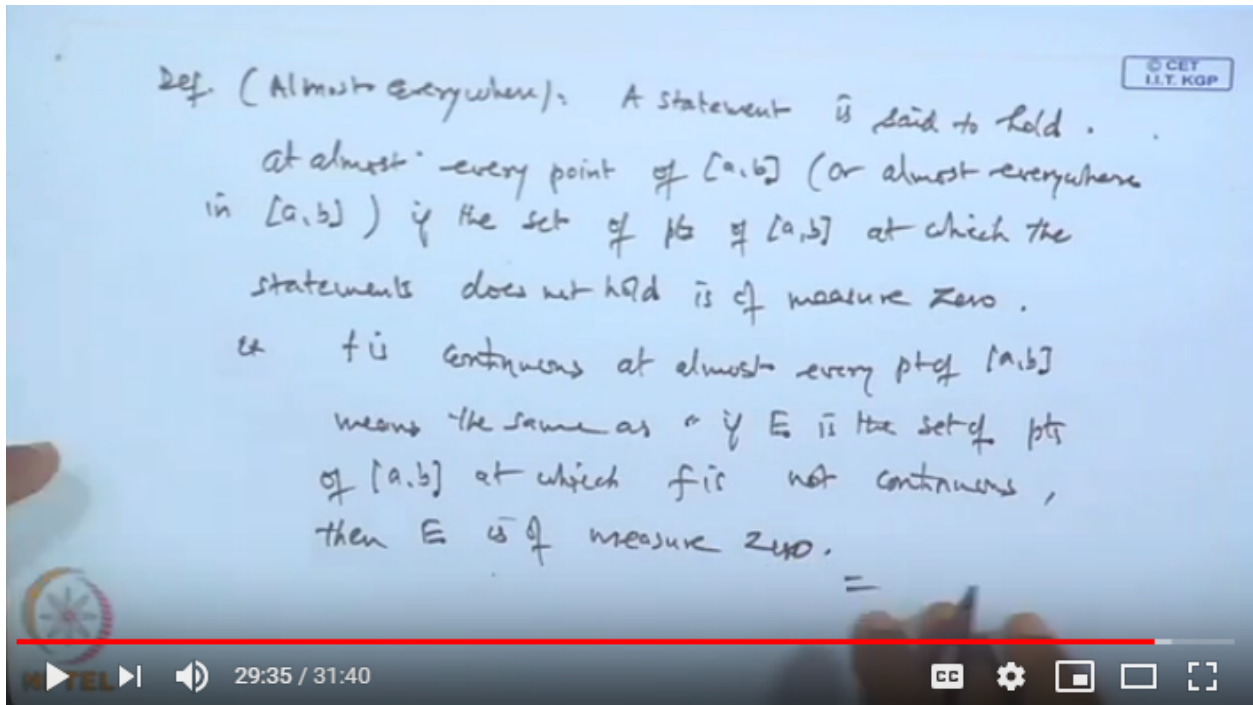 © CET
I.I.T. KGP
Def. (Almost Everywhere): A statement is said to hold.
at almost every point of [a,b] (or almost everywhere
in [a,b]) if the set of pts of [a,b] at which the
statements does not hold is of measure zero.
ex f is continuous at almost every pt of [a,b]
means the same as " if E is the set of pts
of [a,b] at which f is not continuous,
then E is of measure zero.
NPTEL
29:35 / 31:40
CC